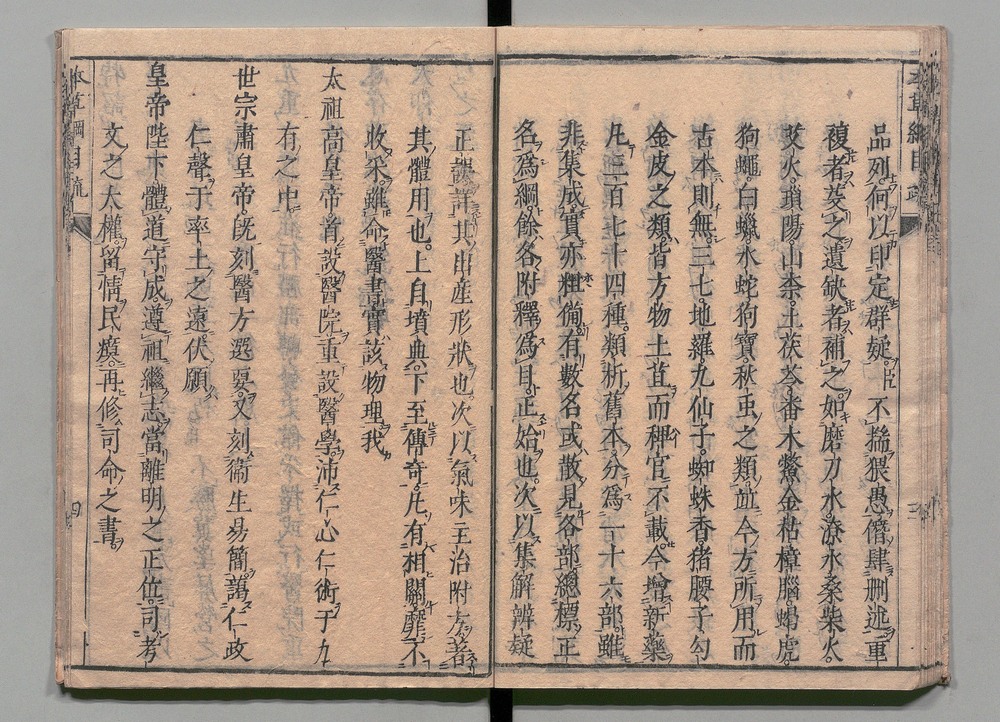 品列何以印定群疑臣不揣猥愚僭肆刪述重
複者芟之遺缺者補之如磨刀水潦水桑柴火
艾火瑣陽山柰土茯苓番木鱉金枯樟腦蝎虎
狗蠅白蠟水蛇狗寶秋虫之類並今方所用而
古本則無三七地羅九仙子蜘蛛香猪腰子勾
金皮之類皆方物土苴而稗官不載今增新藥
凡三百七十四種類析舊本分爲一十六部雖
非集成實亦粗備有數名或散見各部總標正
名爲綱餘各附釋爲目正始也次以集解辨疑
正誤詳其出産形狀也次以氣味主治附方著
其體用也上自墳典下至傳奇凡有相關靡不
收采雖命醫書實該物理我
太祖高皇帝首設醫院重設醫學沛仁心仁術于九
有之中
世宗肅皇帝既刻醫方選要又刻衞生易簡藹仁政
仁聲于率土之遠伏願
皇帝陛下體道守成遵祖繼志當離明之正位司考
文之大權留情民瘼再修司命之書
本草綱目疏
四